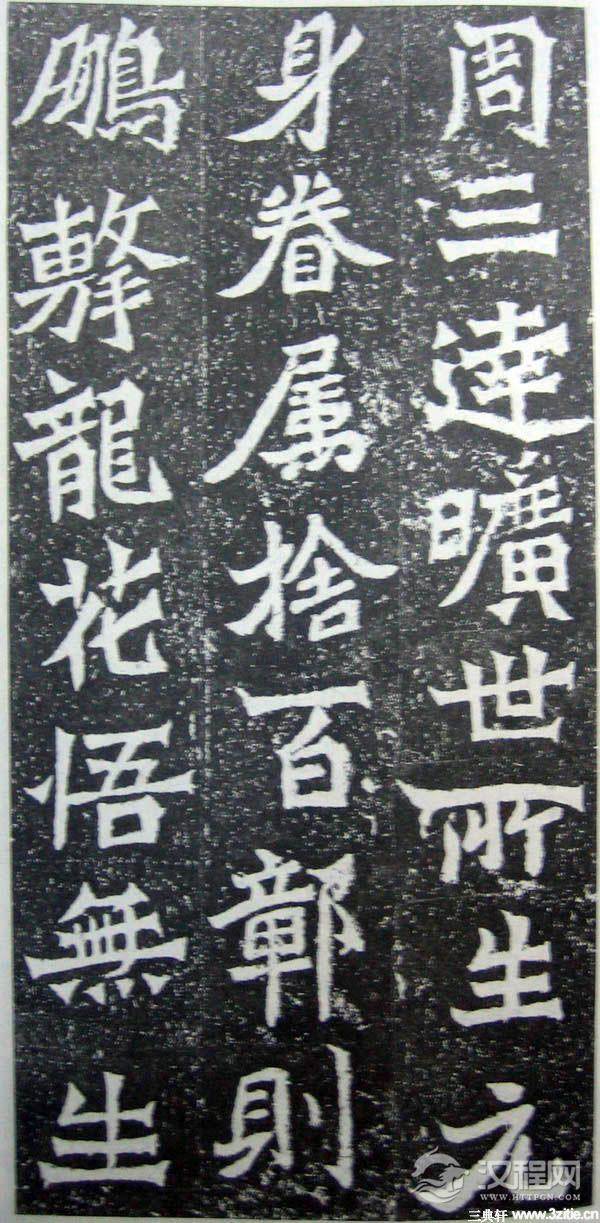 周三達曠世所生元
身眷属捨百鄣則
鵬擊龍花悟無生
汉程网
WWW.HTTPCN.COM
三典轩 www.3zitie.cn